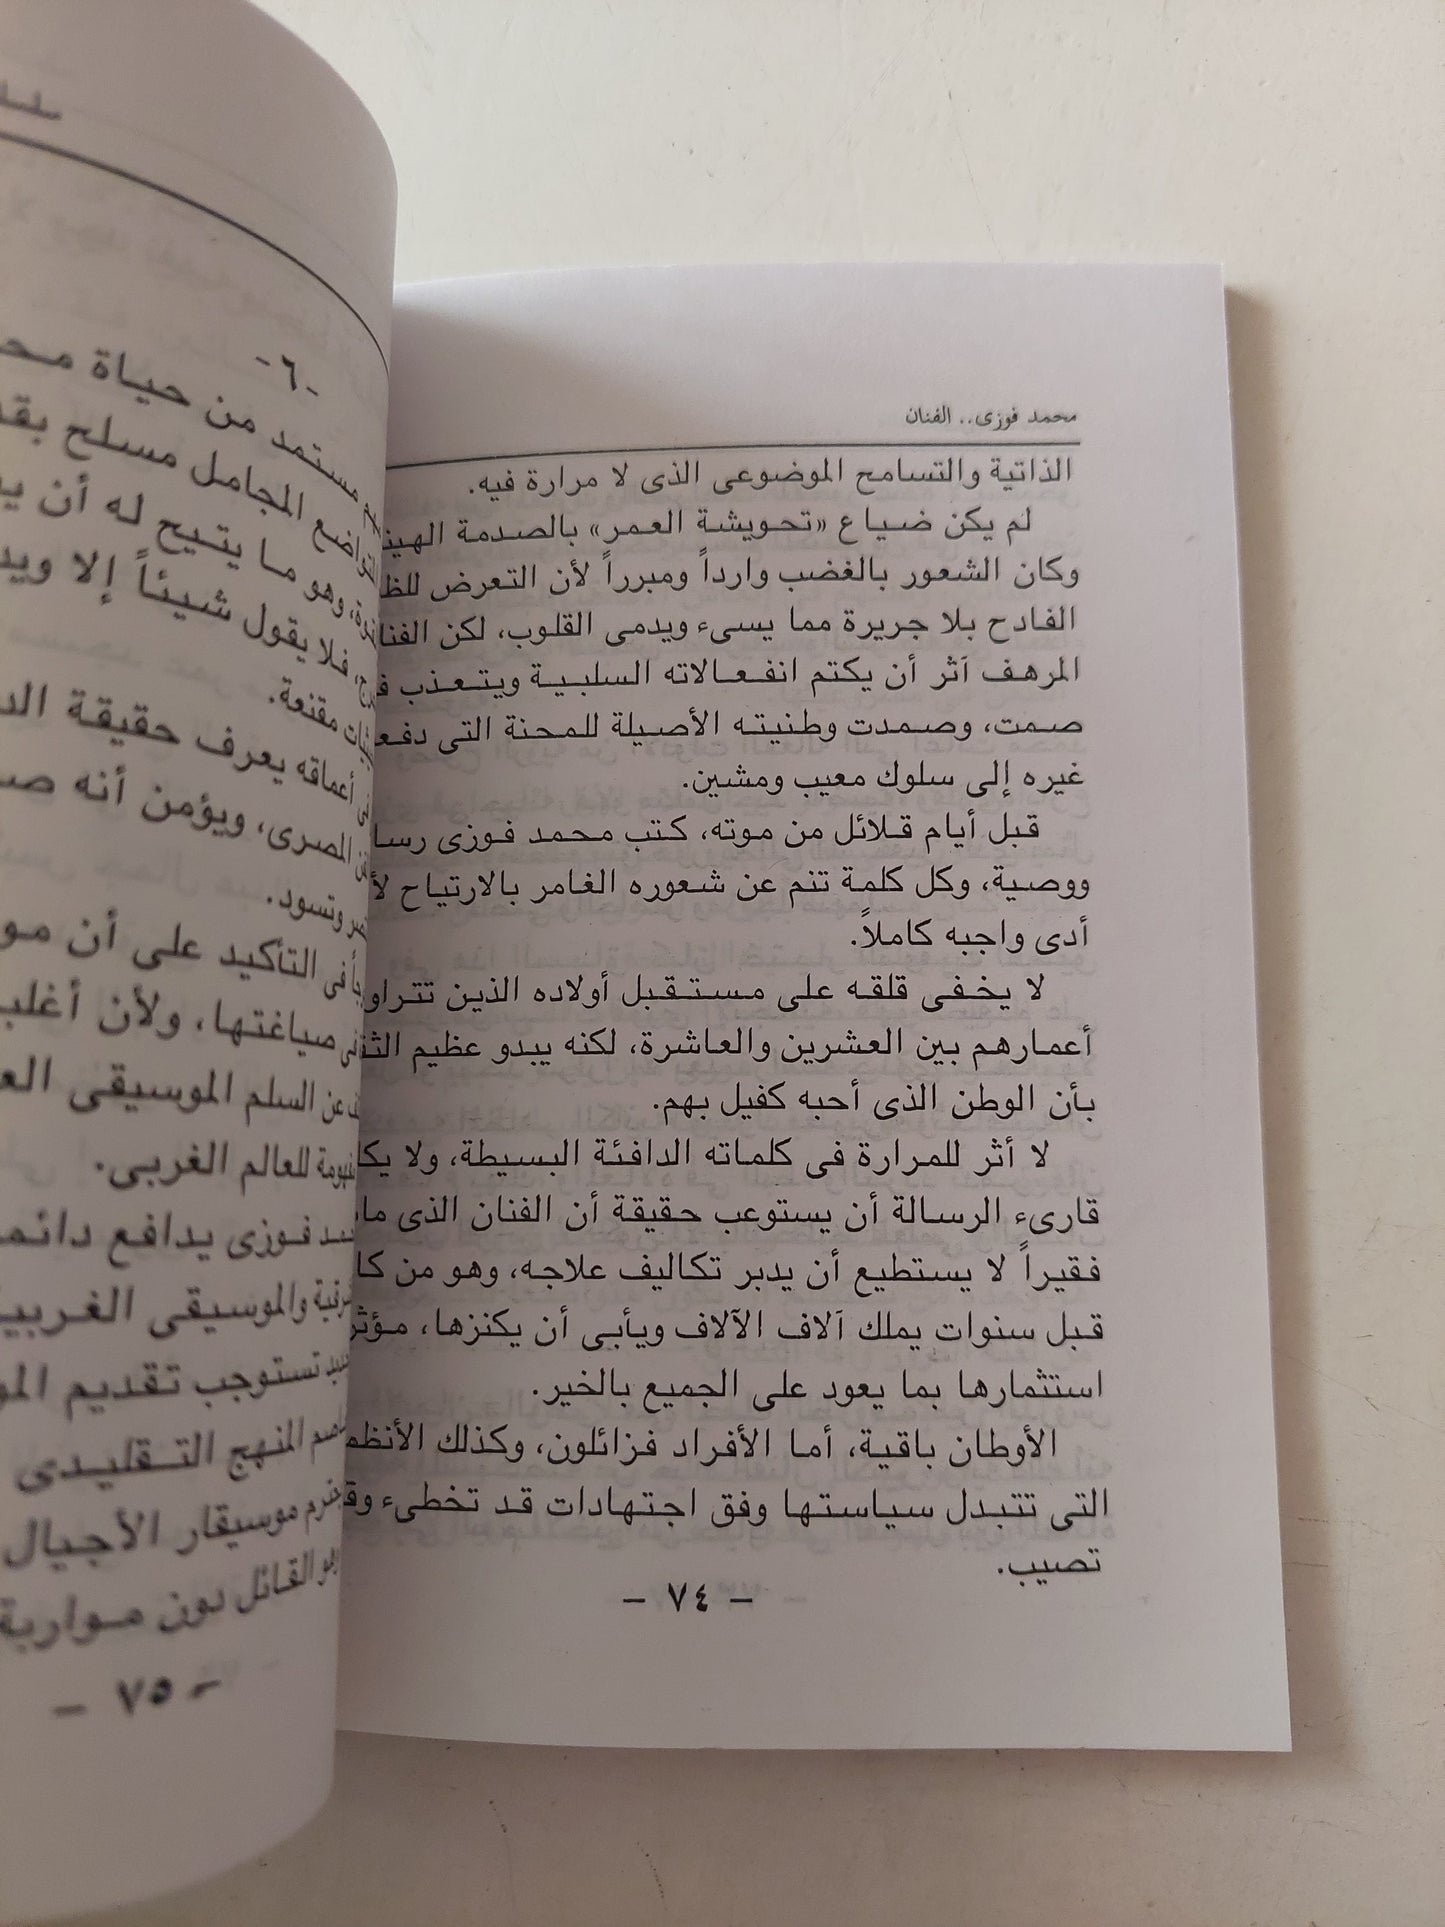 محمد فوزى.. الفنان
الذاتية والتسامح الموضوعى الذى لا مرارة فيه.
لم يكن ضياع «تحويشة العمر» بالصدمة
وكان الشعور بالغضب وارداً ومبرراً لأن التعرض
الفادح بلا جريرة مما يسىء ويدمى القلوب، لكن
المرهف آثر أن يكتم انفعالاته السلبية ويتعذب
صمت، وصمدت وطنيته الأصيلة للمحنة التى
غيره إلى سلوك معيب ومشين.
قبل أيام قلائل من موته، كتب محمد فوزى
ووصية، وكل كلمة تنم عن شعوره الغامر بالارتياح
أدى واجبه كاملاً.
لا يخفى قلقه على مستقبل أولاده الذين
أعمارهم بين العشرين والعاشرة، لكنه يبدو عظيم
بأن الوطن الذى أحبه كفيل بهم.
لا أثر للمرارة فى كلماته الدافئة البسيطة، ولا
قارىء الرسالة أن يستوعب حقيقة أن الفنان الذى
فقيراً لا يستطيع أن يدبر تكاليف علاجه، وهو من
قبل سنوات يملك آلاف الآلاف ويأبى أن يكنزها،
استثمارها بما يعود على الجميع بالخير.
الأوطان باقية، أما الأفراد فزائلون، وكذلك
التى تتبدل سياستها وفق اجتهادات قد تخطىء
تصيب.
- ٧٤ -
-٦-
مستمد من حياة
المجامل مسلح
وهو ما يتيح له أن
فلا يقول شيئاً إلا
مقنعة.
أعماقه يعرف حقيقة
المصرى، ويؤمن أنه
وتسود.
فى التأكيد على أن
صياغتها، ولأن أغلب
عن السلم الموسيقى
للعالم الغربى.
فوزى يدافع
والموسيقى
تستوجب تقديم
المنهج التقليدى
موسيقار الأجيال
القائل دون مواربة
- ٧٥ -